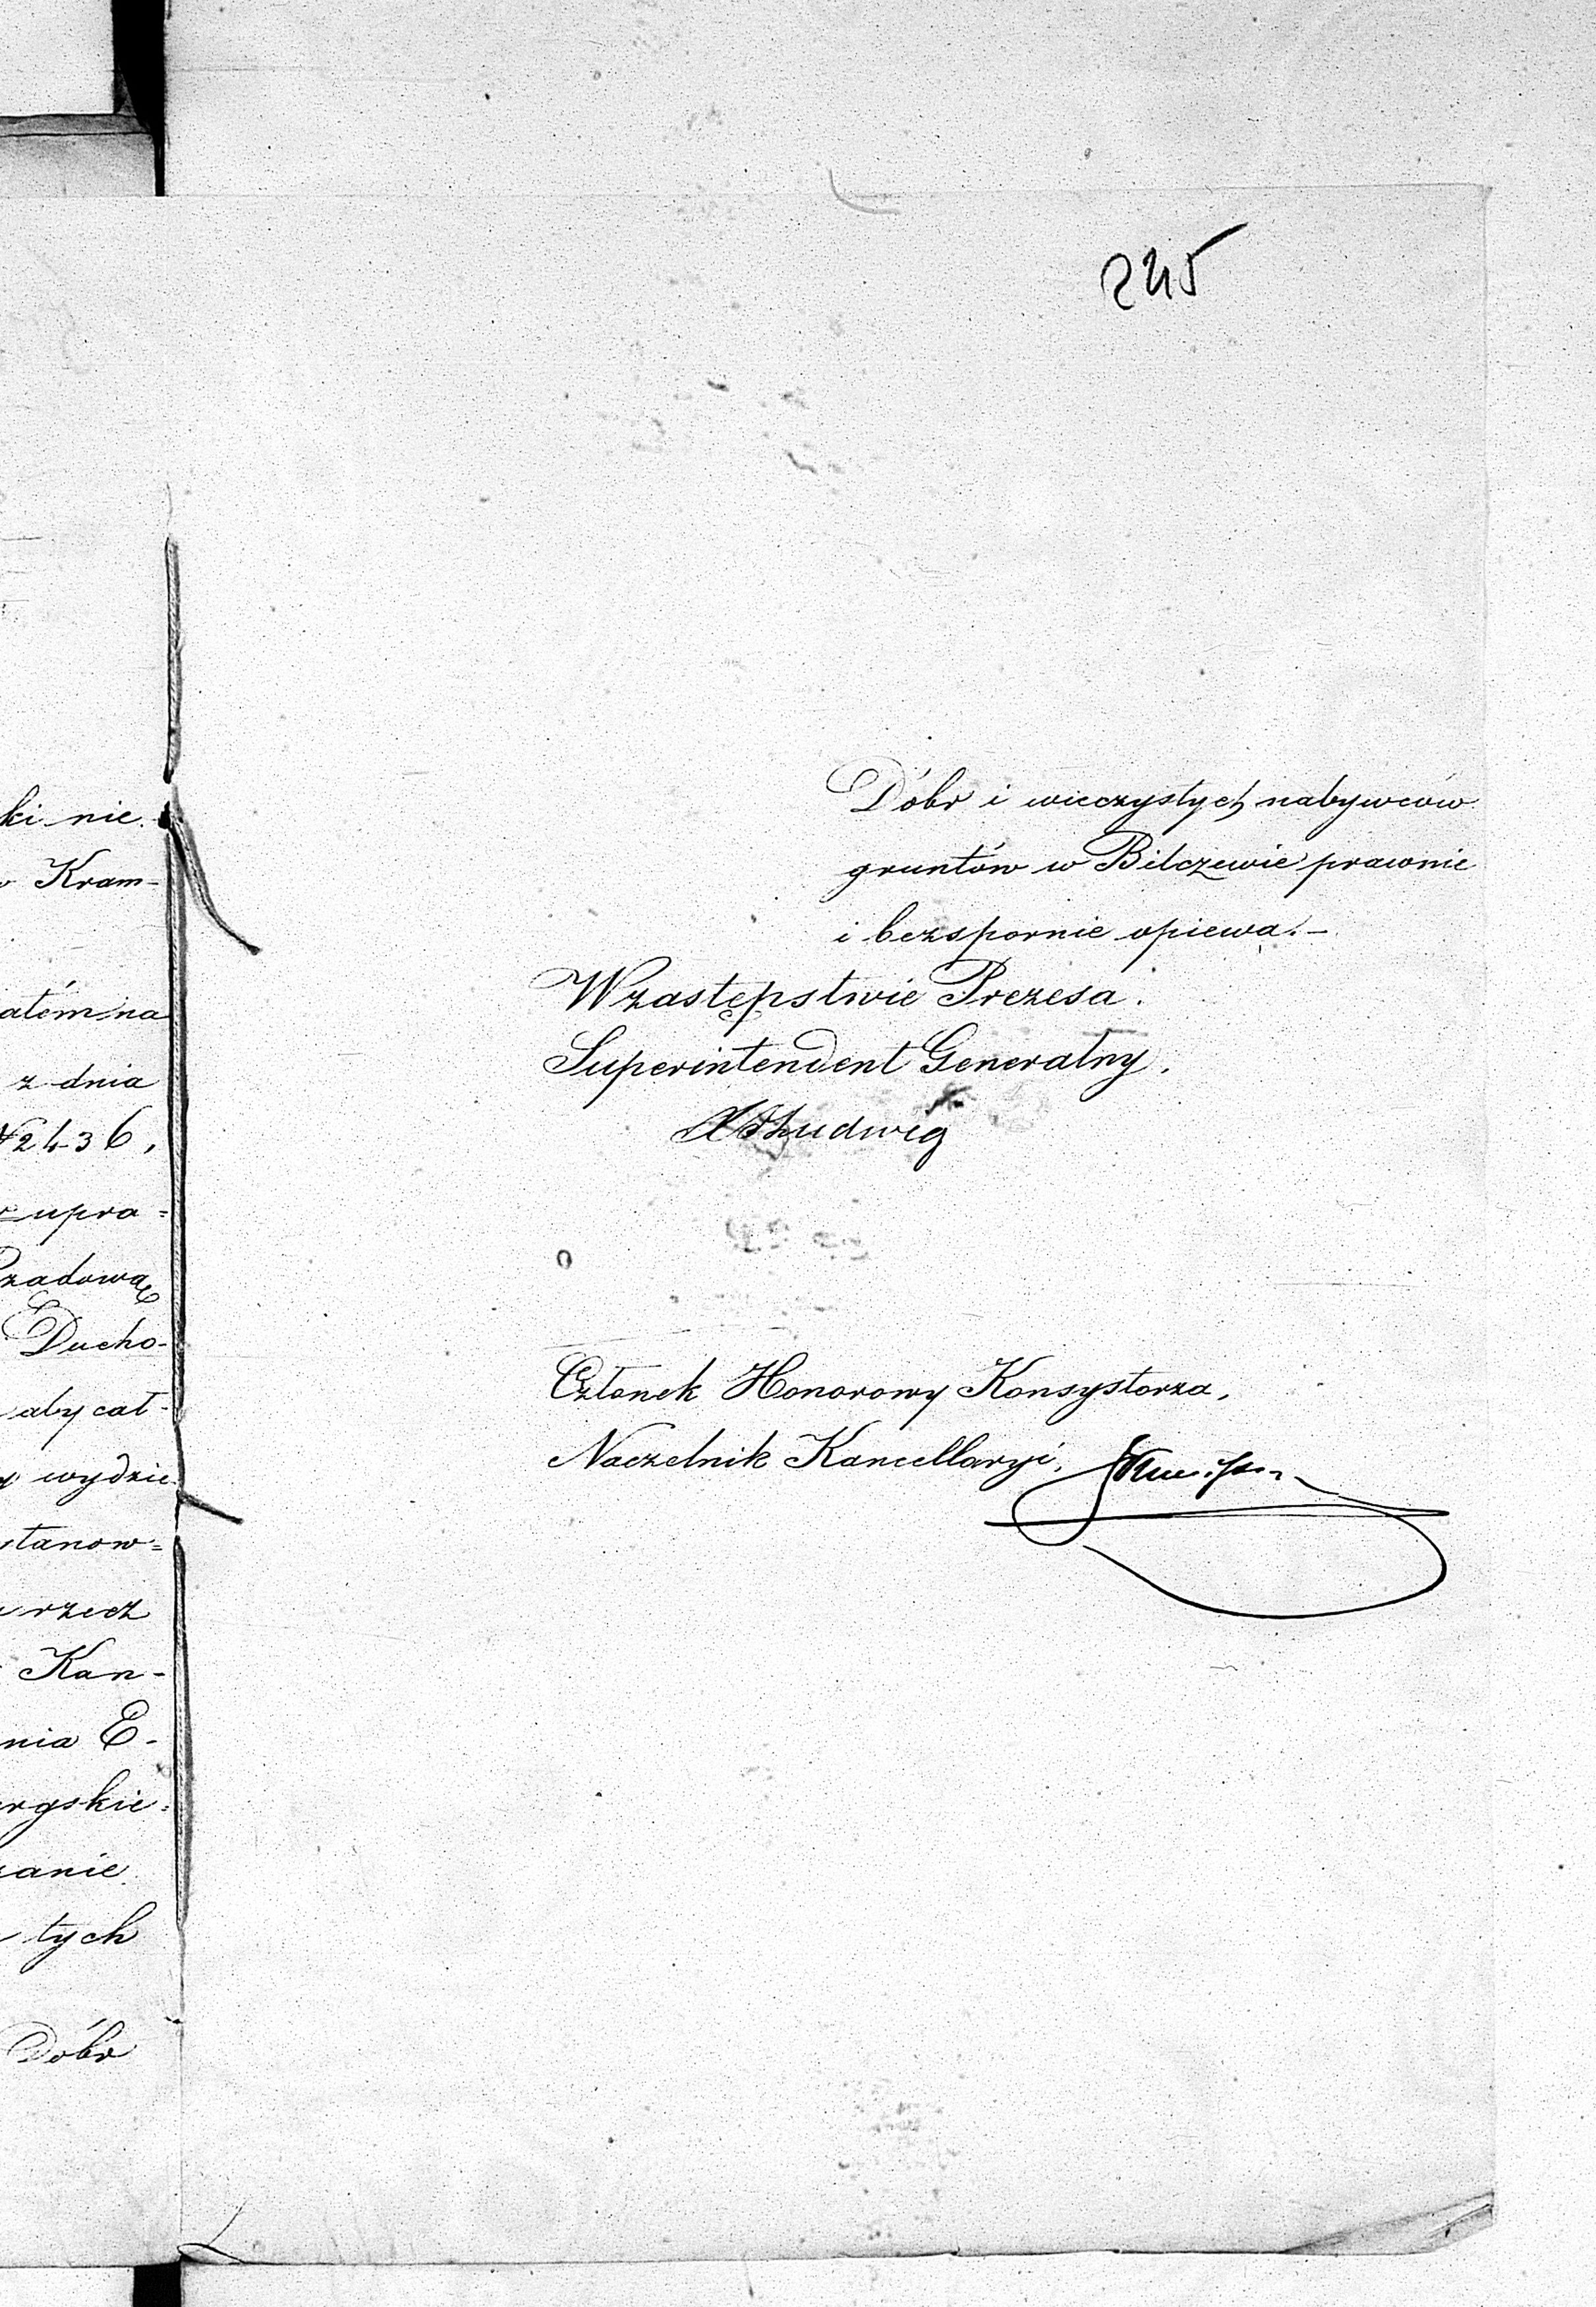 ki nie
Kram-
z dnia
№ 2436,
upra=
Rządową
Ducho-
aby cał-
wydzie
stanow=
rzecz
Kan-
nia E-
ergskie=
zanie
tych
Dóbr
245
Dóbr i wieczystych nabywców
gruntów w Bilczewie prawnie
i bezspornie opiewa.-
W zastępstwie Prezesa.
Superintendent Generalny,
Ludwig
Członek Honorowy Konsystorza,
Naczelnik Kancellaryi,